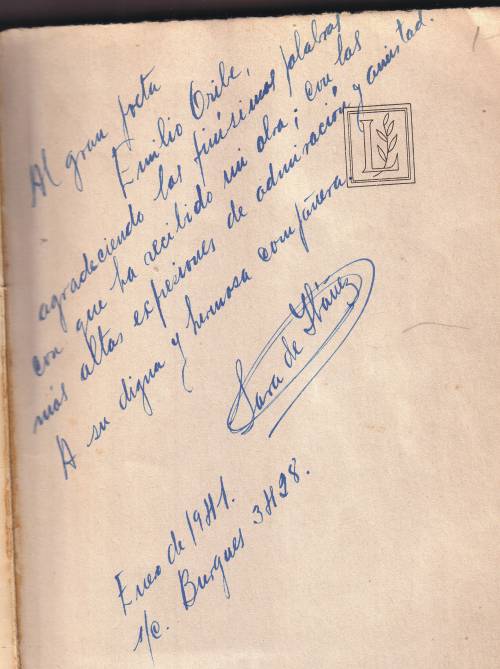 Al gran poeta
Emilio Oribe,
agradeciendo las finísimas palabras
con que ha recibido mi obra; con las
más altas expresiones de admiración y amistad.
A su digna y hermosa compañera.
Sara de Ibáñez
Enero de 1941.
s/c. Burgues 3428.
L